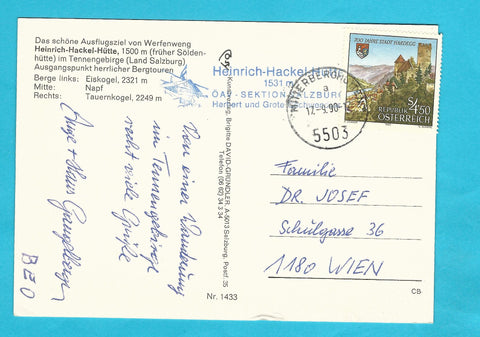 Das schöne Ausflugsziel von Werfenweng
Heinrich-Hackel-Hütte, 1500 m (früher Sölden-
hütte) im Tennengebirge (Land Salzburg)
Ausgangspunkt herrlicher Bergtouren
Berge links: Eiskogel, 2321 m
Mitte: Napf
Rechts: Tauernkogel, 2249 m
Von einer Wanderung
im Tennengebirge
recht viele Grüße
BEO
Kunstverlag, Brigitte DAVID-GRÜNDLER, A-5013 Salzburg, Postf. 35
Telefon (06 62) 34 3 34
Nr. 1433
Heinrich-Hackel-Hütte
1531 m
ÖAV-SEKTION SALZBURG
Herbert und
5503
700 JAHRE STADT HARDEGG
S 4.50
REPUBLIK
ÖSTERREICH
Familie
DR. JOSEF
Schulgasse 36
1180 WIEN
CB